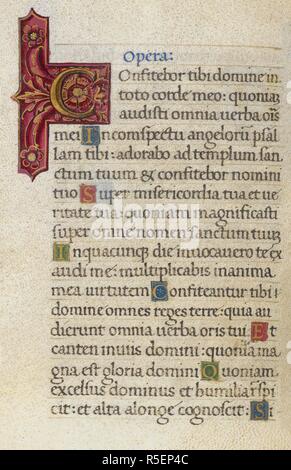 Opera:
Confitebor tibi domine in
toto corde meo: quoniaʒ
audisti omnia verba oīs
mei In conspectu angelorū psal
lam tibi: adorabo ad templum san
ctum tuum & confitebor nomini
tuo Super misericordia tua et ve
ritate tua: quoniam magnificasti
super omne nomen sanctum tuuʒ
In quacunque die inuocauero te ex
audi me: multiplicabis in anima
mea virtutem Confiteantur tibi
domine omnes reges terre: quia au
dierunt omnia verba oris tui Et
canten in uiis domini: quonia ma
gna est gloria domini Quoniam
excelsus dominus et humilia spi
cit: et alta alonge cognoscit: Si
alamy
Image ID: R5EP4C
www.alamy.com